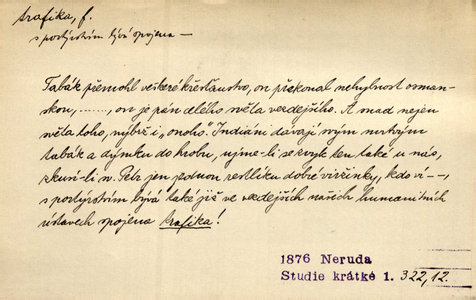 trafika, f.
s portýrstvím bývá spojena —
Tabák přemohl veškeré křesťanstvo, on překonal nehybnost osman-
skou, ......., on je pán celého světa zdejšího. A snad nejen
světa toho, nýbrž i „onoho". Indiáni dávají svým mrtvým
tabák a dýmku do hrobu, ujme-li se zvyk ten také u nás,
zkusí-li sv. Petr jen jednou restličku dobré viržinky, kdo ví – –,
s portýrstvím bývá také již ve zdejších našich humanitních
ústavech spojena trafika!
1876 Neruda
Studie krátké 1. 322,12.